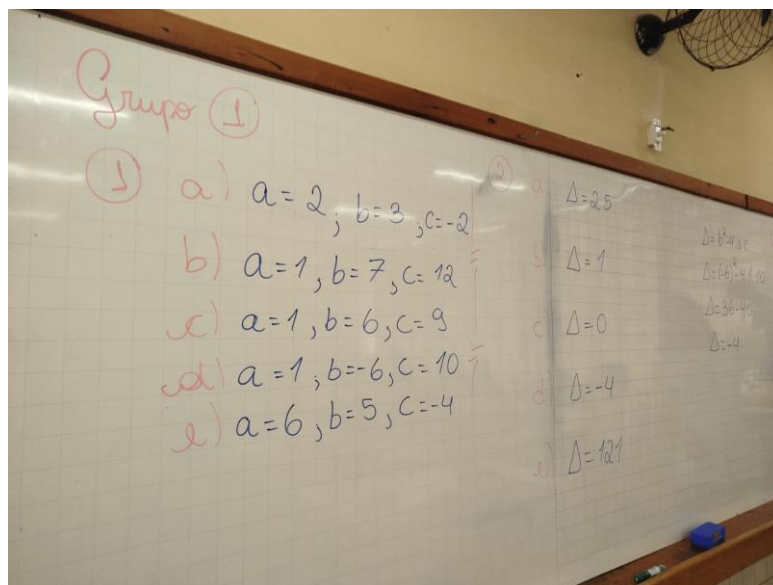 Grupo 1
1 a) a=2; b=3, c=-2
b) a=1, b=7, c=12
c) a=1, b=6, c=9
d) a=1, b=-6, c=10
e) a=6, b=5, c=-4
2 a) Δ=25
b) Δ=1
c) Δ=0
d) Δ=-4
e) Δ=121
Δ=b²-4ac
Δ=(-6)²-4.1.10
Δ=36-40
Δ=-4